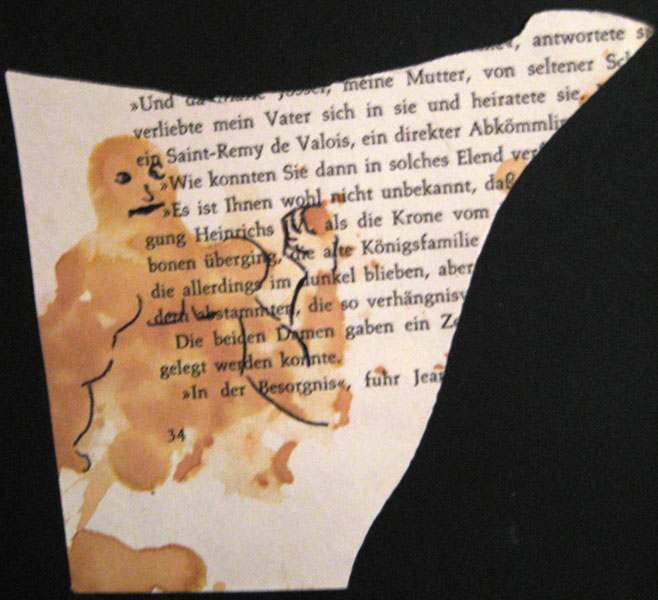 antwortete
»Und meine Mutter, von seltener
verliebte mein Vater sich in sie und heiratete sie,
ein Saint-Remy de Valois, ein direkter
»Wie konnten Sie dann in solches Elend
»Es ist Ihnen wohl nicht unbekannt, daß
gung Heinrichs als die Krone vom
bonen überging, die alte Königsfamilie
die allerdings im dunkel blieben, aber
abstammten, die so
Die beiden Damen gaben ein
gelegt werden konnte.
»In der Besorgnis«, fuhr
34